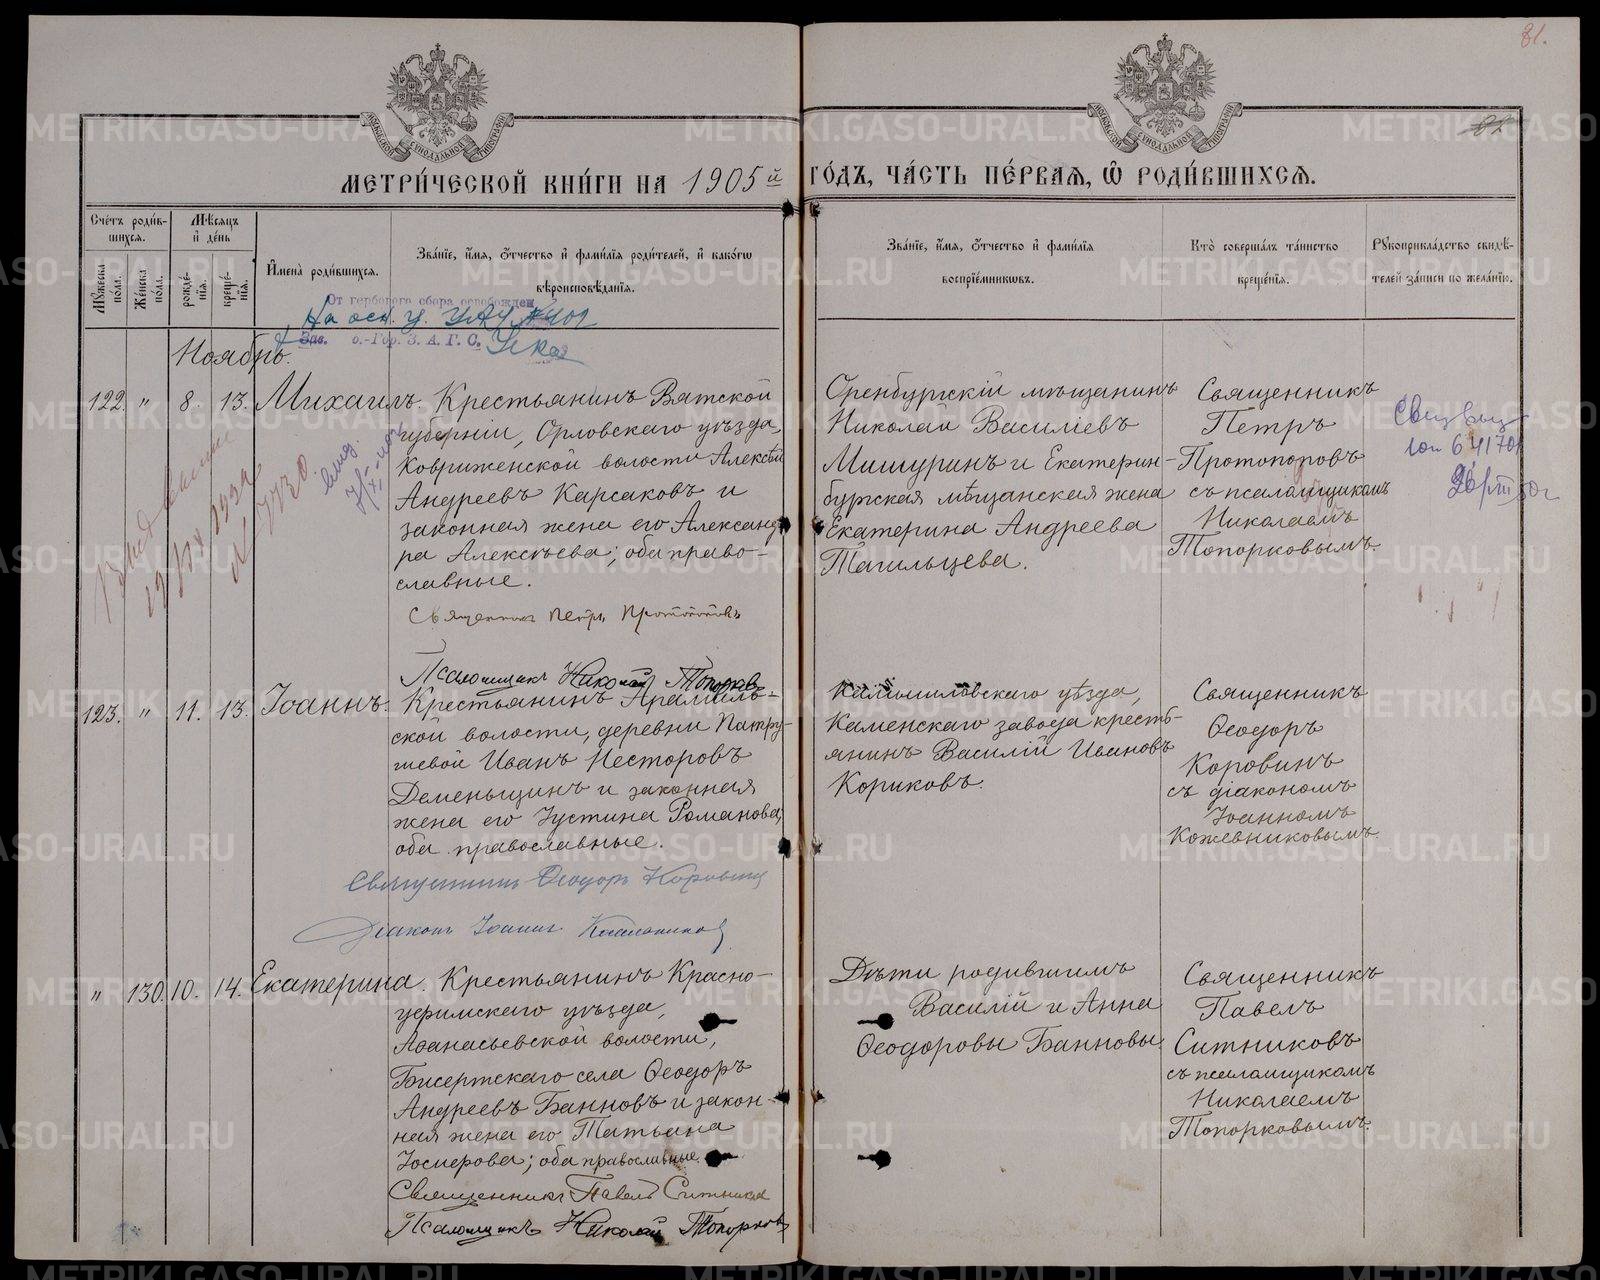 81.
82
МЕТРИ́ЧЕСКОЙ КНИ́ГИ НА 1905й ГО́ДЪ, ЧА́СТЬ ПЕ́РВАѦ, Ѡ҆ РОДИ́ВШИХСѦ.
Сче́тъ роди́в-
шихся.
Мѣ́сяцъ
и҆ де́нь
Мꙋ́жеска по́ла.
Же́нска по́ла.
рожде́нїѧ.
креще́нїѧ.
И҆мена̀ роди́вшихсѧ.
Зва́нїе, и҆́мѧ, ѻ҆́тчество и҆ фами́лїѧ роди́телей, и҆ како́гѡ
вѣроисповѣ́данїѧ.
Зва́нїе, и҆́мѧ, ѻ҆́тчество и҆ фами́лїѧ
воспрїе́мникѡвъ.
Кто̀ соверша́лъ та́инство
креще́нїѧ.
Рꙋкоприкла́дство свидѣ́-
телей за́писи по жела́нїю.
От гербового сбора освобожден
На осн. У.
Зав. о.-Гор. З. А. Г. С.
Ноябрь.
122. " 8. 13. Михаилъ.
Крестьянинъ Вятской
губернiи, Орловскаго уѣзда,
Ковриженской волости Алексѣй
Андреевъ Карсаковъ и
законная жена его Александ
ра Алексѣева; оба право-
славные.
Священникъ Петръ Протопоповъ
Псаломщикъ Николай Топорковъ
Оренбургскiй мѣщанинъ
Николай Василiевъ
Мишуринъ и Екатерин-
бургская мѣщанская жена
Екатерина Андреева
Тагильцева.
Священникъ
Петръ
Протопоповъ
съ псаломщикомъ
Николаемъ
Топорковымъ.
123. " 11. 13. Iоаннъ.
Крестьянинъ Арамиль-
ской волости, деревни Патру-
шевой Иванъ Несторовъ
Деменьщинъ и законная
жена его Iустина Романова;
оба православные.
Священникъ Ѳеодоръ Коровинъ
Дiаконъ Iоаннъ Кожевниковъ
Камышловскаго уѣзда,
Каменскаго завода кресть-
янинъ Василiй Ивановъ
Кориковъ.
Священникъ
Ѳеодоръ
Коровинъ
съ дiакономъ
Iоанномъ
Кожевниковымъ.
" 130. 10. 14. Екатерина.
Крестьянинъ Красно-
уфимскаго уѣзда,
Аѳанасьевской волости,
Бисертскаго села Ѳеодоръ
Андреевъ Банновъ и закон-
ная жена его Татьяна
Iосифова; оба православные.
Священникъ Павелъ Ситниковъ
Псаломщикъ Николай Топорковъ
Дѣти родившимъ
Василiй и Анна
Ѳеодоровы Банновы.
Священникъ
Павелъ
Ситниковъ
съ псаломщикомъ
Николаемъ
Топорковымъ.